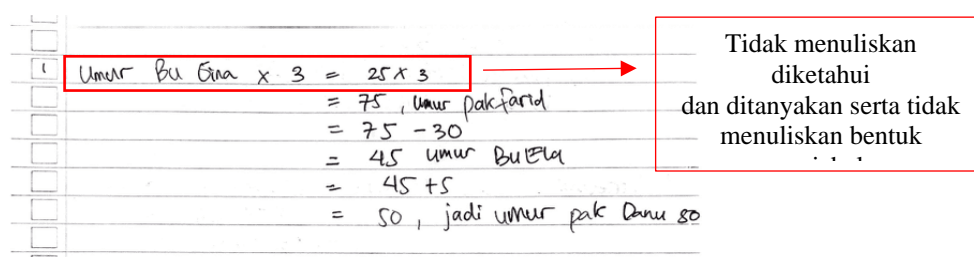 1 Umur Bu Gina x 3 = 25 x 3
= 75, umur pak farid
= 75 - 30
= 45 umur Bu Ela
= 45 + 5
= 50, jadi umur pak Danu 50
Tidak menuliskan
diketahui
dan ditanyakan serta tidak
menuliskan bentuk